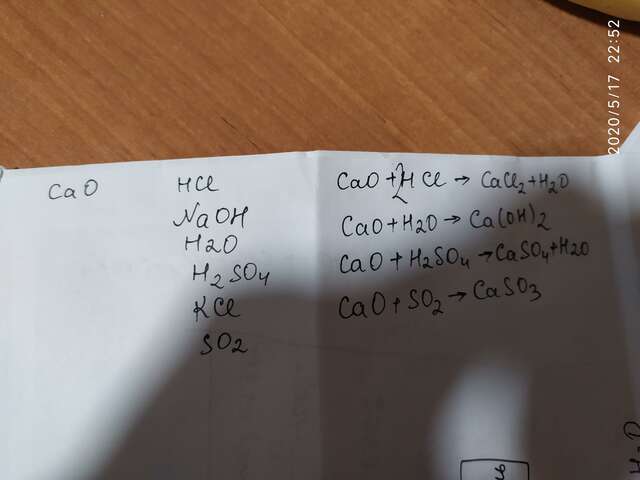 2020/5/17 22:52
CaO
HCl
NaOH
H2O
H2SO4
KCl
SO2
CaO + 2HCl → CaCl2 + H2O
CaO + H2O → Ca(OH)2
CaO + H2SO4 → CaSO4 + H2O
CaO + SO2 → CaSO3
H2O